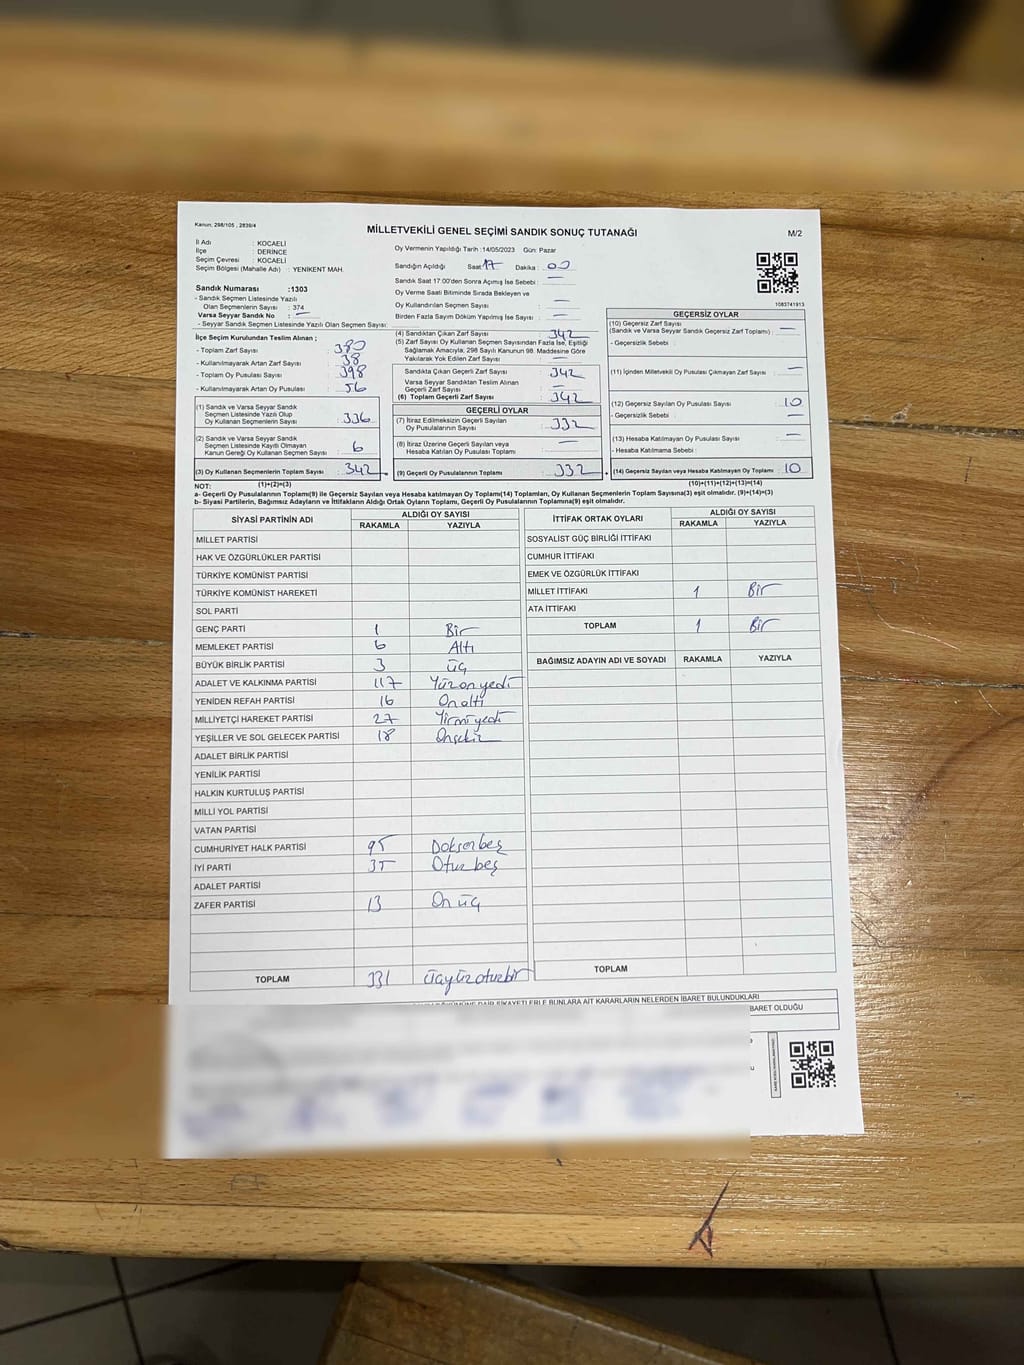 Kanun; 298/105 , 2839/4
MİLLETVEKİLİ GENEL SEÇİMİ SANDIK SONUÇ TUTANAĞI
M/2
İl Adı : KOCAELİ
İlçe : DERİNCE
Seçim Çevresi : KOCAELİ
Seçim Bölgesi (Mahalle Adı) : YENİKENT MAH.
Sandık Numarası :1303
- Sandık Seçmen Listesinde Yazılı
Olan Seçmenlerin Sayısı : 374
Varsa Seyyar Sandık No : —
- Seyyar Sandık Seçmen Listesinde Yazılı Olan Seçmen Sayısı:
İlçe Seçim Kurulundan Teslim Alınan ;
- Toplam Zarf Sayısı : 380
- Kullanılmayarak Artan Zarf Sayısı : 38
- Toplam Oy Pusulası Sayısı : 398
- Kullanılmayarak Artan Oy Pusulası : 56
(1) Sandık ve Varsa Seyyar Sandık
Seçmen Listesinde Yazılı Olup
Oy Kullanan Seçmenlerin Sayısı : 336
(2) Sandık ve Varsa Seyyar Sandık
Seçmen Listesinde Kayıtlı Olmayan
Kanun Gereği Oy Kullanan Seçmen Sayısı : 6
(3) Oy Kullanan Seçmenlerin Toplam Sayısı : 342
(1)+(2)=(3)
Oy Vermenin Yapıldığı Tarih :14/05/2023 Gün: Pazar
Sandığın Açıldığı Saat: 17 Dakika : 00
Sandık Saat 17:00'den Sonra Açımış İse Sebebi : —
Oy Verme Saati Bitiminde Sırada Bekleyen ve
Oy Kullandırılan Seçmen Sayısı : —
Birden Fazla Sayım Döküm Yapılmış İse Sayısı : —
(4) Sandıktan Çıkan Zarf Sayısı : 342
(5) Zarf Sayısı Oy Kullanan Seçmen Sayısından Fazla İse, Eşitliği
Sağlamak Amacıyla, 298 Sayılı Kanunun 98. Maddesine Göre
Yakılarak Yok Edilen Zarf Sayısı : —
Sandıkta Çıkan Geçerli Zarf Sayısı : 342
Varsa Seyyar Sandıktan Teslim Alınan
Geçerli Zarf Sayısı : —
(6) Toplam Geçerli Zarf Sayısı : 342
GEÇERLİ OYLAR
(7) İtiraz Edilmeksizin Geçerli Sayılan
Oy Pusulalarının Sayısı : 332
(8) İtiraz Üzerine Geçerli Sayılan veya
Hesaba Katılan Oy Pusulası Toplamı : —
(9) Geçerli Oy Pusulalarının Toplamı : 332
1083741913
GEÇERSİZ OYLAR
(10) Geçersiz Zarf Sayısı
(Sandık ve Varsa Seyyar Sandık Geçersiz Zarf Toplamı) : —
- Geçersizlik Sebebi :
(11) İçinden Milletvekili Oy Pusulası Çıkmayan Zarf Sayısı : —
(12) Geçersiz Sayılan Oy Pusulası Sayısı : 10
- Geçersizlik Sebebi : —
(13) Hesaba Katılmayan Oy Pusulası Sayısı : —
- Hesaba Katılmama Sebebi :
(14) Geçersiz Sayılan veya Hesaba Katılmayan Oy Toplamı : 10
(10)+(11)+(12)+(13)=(14)
NOT:
a- Geçerli Oy Pusulalarının Toplamı(9) ile Geçersiz Sayılan veya Hesaba katılmayan Oy Toplamı(14) Toplamları, Oy Kullanan Seçmenlerin Toplam Sayısına(3) eşit olmalıdır. (9)+(14)=(3)
b- Siyasi Partilerin, Bağımsız Adayların ve İttifakların Aldığı Ortak Oyların Toplamı, Geçerli Oy Pusulalarının Toplamına(9) eşit olmalıdır.
SİYASİ PARTİNİN ADI ALDIĞI OY SAYISI
RAKAMLA YAZIYLA
MİLLET PARTİSİ
HAK VE ÖZGÜRLÜKLER PARTİSİ
TÜRKİYE KOMÜNİST PARTİSİ
TÜRKİYE KOMÜNİST HAREKETİ
SOL PARTİ
GENÇ PARTİ 1 Bir
MEMLEKET PARTİSİ 6 Altı
BÜYÜK BİRLİK PARTİSİ 3 üç
ADALET VE KALKINMA PARTİSİ 117 Yüzonyedi
YENİDEN REFAH PARTİSİ 16 Onaltı
MİLLİYETÇİ HAREKET PARTİSİ 27 Yirmiyedi
YEŞİLLER VE SOL GELECEK PARTİSİ 18 Onsekiz
ADALET BİRLİK PARTİSİ
YENİLİK PARTİSİ
HALKIN KURTULUŞ PARTİSİ
MİLLİ YOL PARTİSİ
VATAN PARTİSİ
CUMHURİYET HALK PARTİSİ 95 Doksanbeş
İYİ PARTİ 35 Otuzbeş
ADALET PARTİSİ
ZAFER PARTİSİ 13 On üç
TOPLAM 331 üçyüzotuzbir
İTTİFAK ORTAK OYLARI ALDIĞI OY SAYISI
RAKAMLA YAZIYLA
SOSYALİST GÜÇ BİRLİĞİ İTTİFAKI
CUMHUR İTTİFAKI
EMEK VE ÖZGÜRLÜK İTTİFAKI
MİLLET İTTİFAKI 1 Bir
ATA İTTİFAKI
TOPLAM 1 Bir
BAĞIMSIZ ADAYIN ADI VE SOYADI RAKAMLA YAZIYLA
TOPLAM
DÖKÜMÜNE DAİR ŞİKAYETLERLE BUNLARA AİT KARARLARIN NELERDEN İBARET BULUNDUKLARI
İBARET OLDUĞU